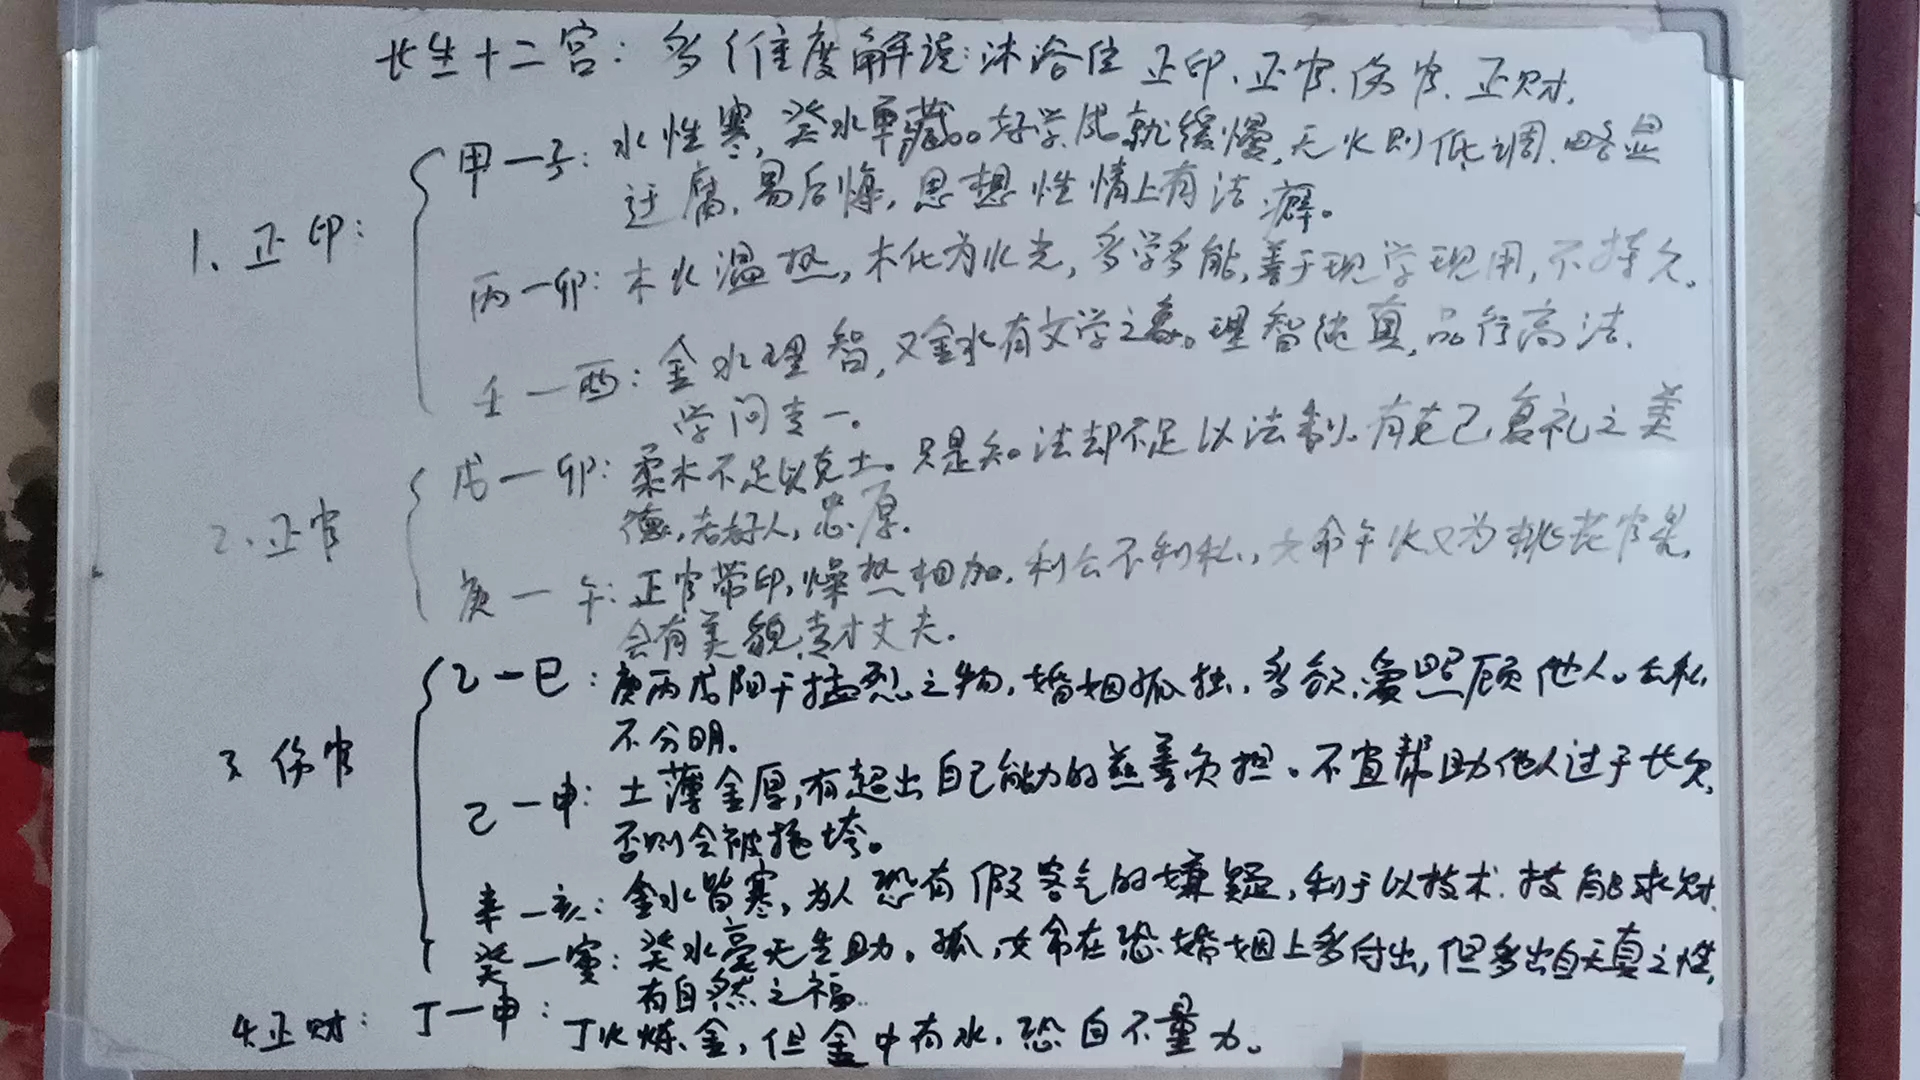 长生十二宫：多维度解读：沐浴住正印、正官、伤官、正财.
甲一子：水性寒，癸水单藏。好学成就缓慢，无火则低调.略显
迂腐，易后悔，思想性情上有洁癖。
1、正印：
丙一卯：木火温热，木化为火光，多学多能，善于现学现用，不持久。
壬一酉：金水理智，又金水有文学之象。理智纯真，品行高洁.
学问专一。
戊一卯：柔木不足以克土。只是知法却不足以法制。有克己复礼之美
德，老好人，忠厚.
2、正官
庚一午：正官带印，燥热相加，利公不利私，女命午火又为桃花官星，
会有美貌专才丈夫.
乙一巳：庚丙戊阳干猛烈之物，婚姻孤独，多欲，爱照顾他人。公私
不分明。
3 伤官
己一申：土薄金厚，有超出自己能力的慈善负担。不宜帮助他人过于长久，
否则会被拖垮。
辛一亥：金水皆寒，为人恐有假客气的嫌疑，利于以技术.技能求财.
癸一寅：癸水毫无生助。孤，女命在恐婚姻上多付出，但多出自天真之性，
有自然之福.
4.正财：丁一申：丁火炼金，但金中有水.恐自不量力。